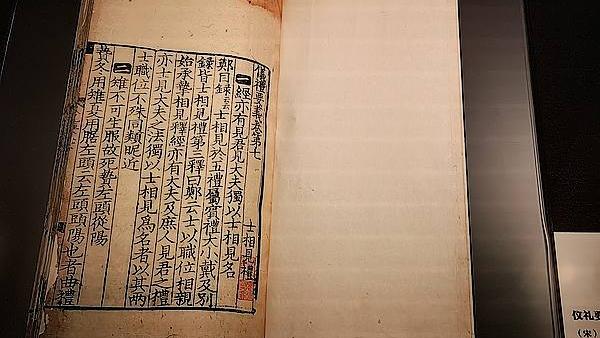 儀禮要義卷第七
士相見禮
一經亦有見君見大夫獨以士相見名
鄭目録云士相見於五禮屬賓禮大小戴及別
録皆士相見禮第三釋曰鄭云士以職位相親
始承摯相見釋經亦有大夫及庶人見君之禮
亦士見大夫之法獨以士相見爲名者以其兩
士職位不殊同類昵近
二雉不可生服故死摯左頭從陽
摯冬用雉夏用腒左頭云左頭頭陽也者曲禮
仪礼要
（宋）